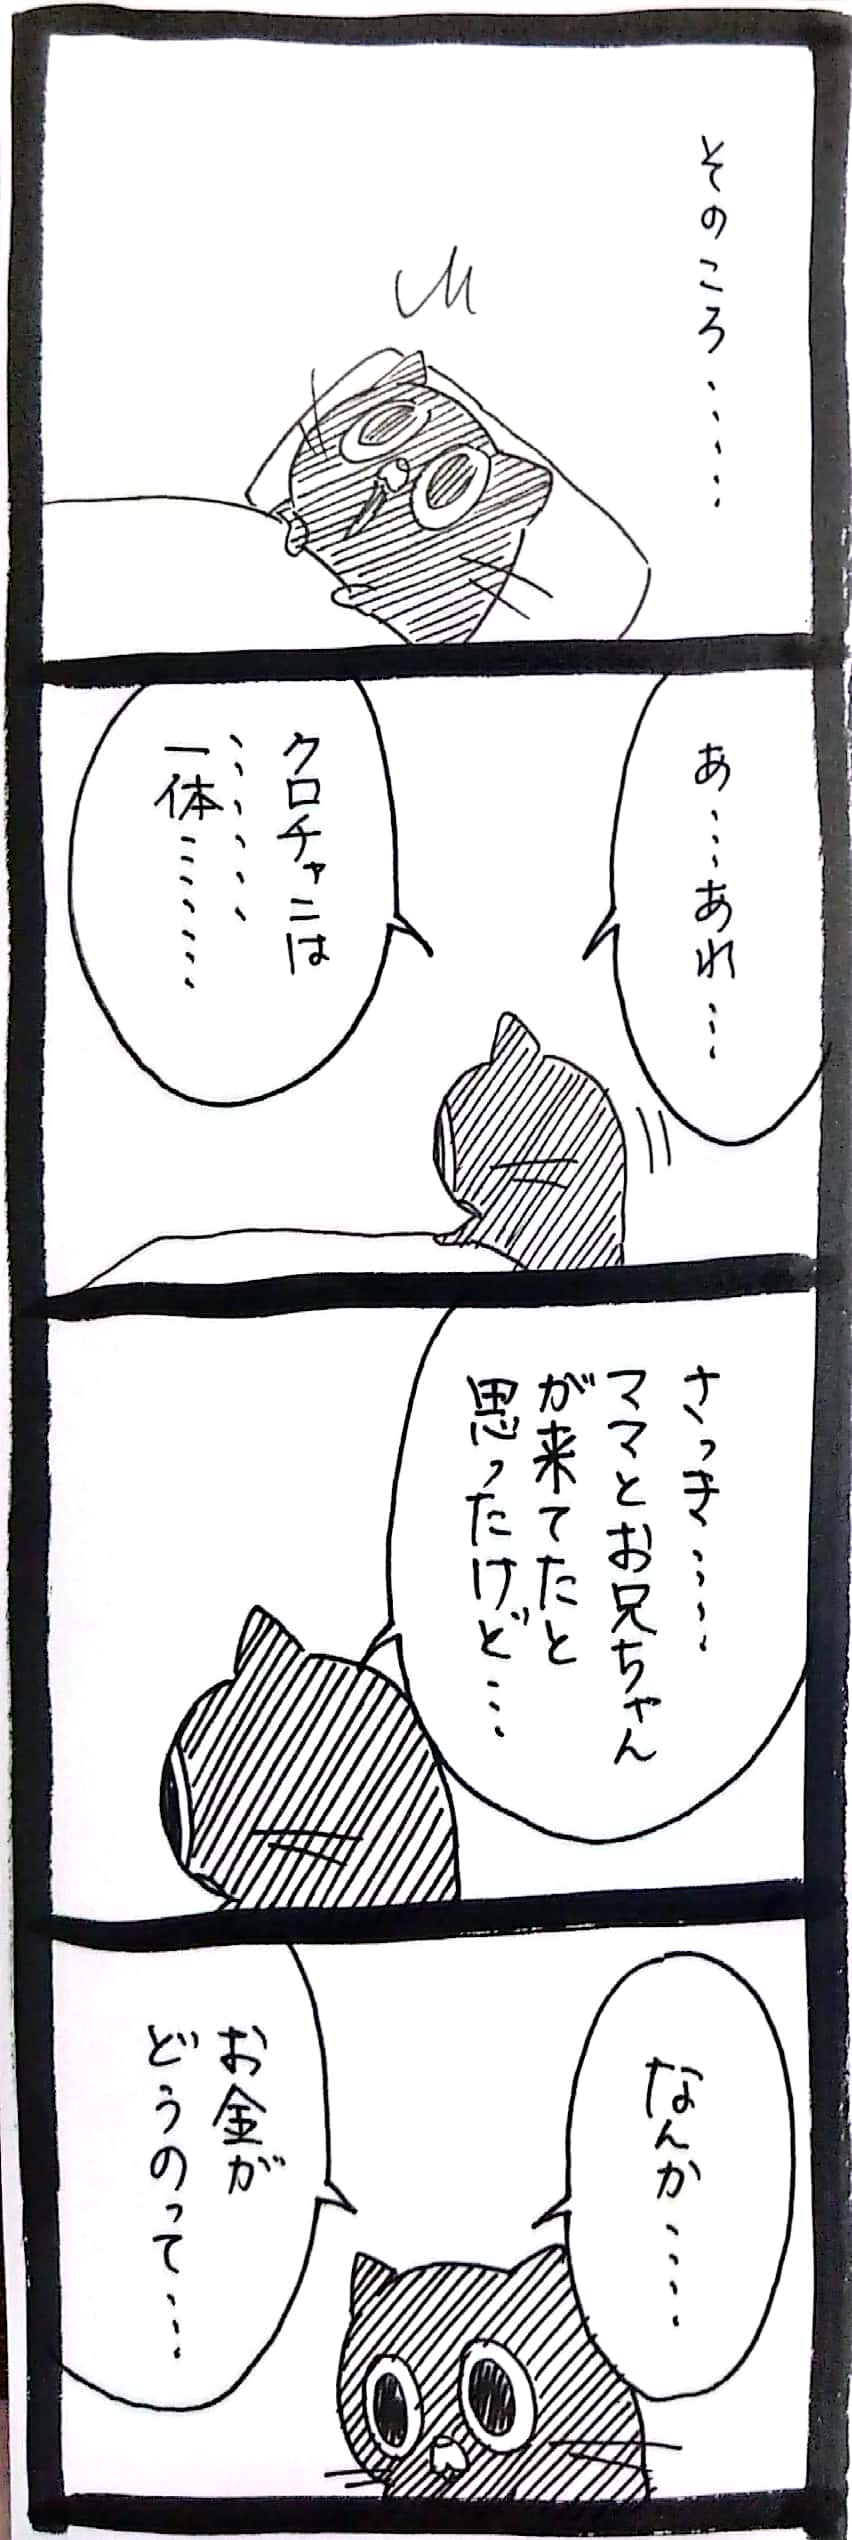 そのころ……
あ……あれ……
クロチャニは
………
一体………
さっき……
ママとお兄ちゃん
が来てたと
思ったけど…
なんか……
お金が
どうのって…